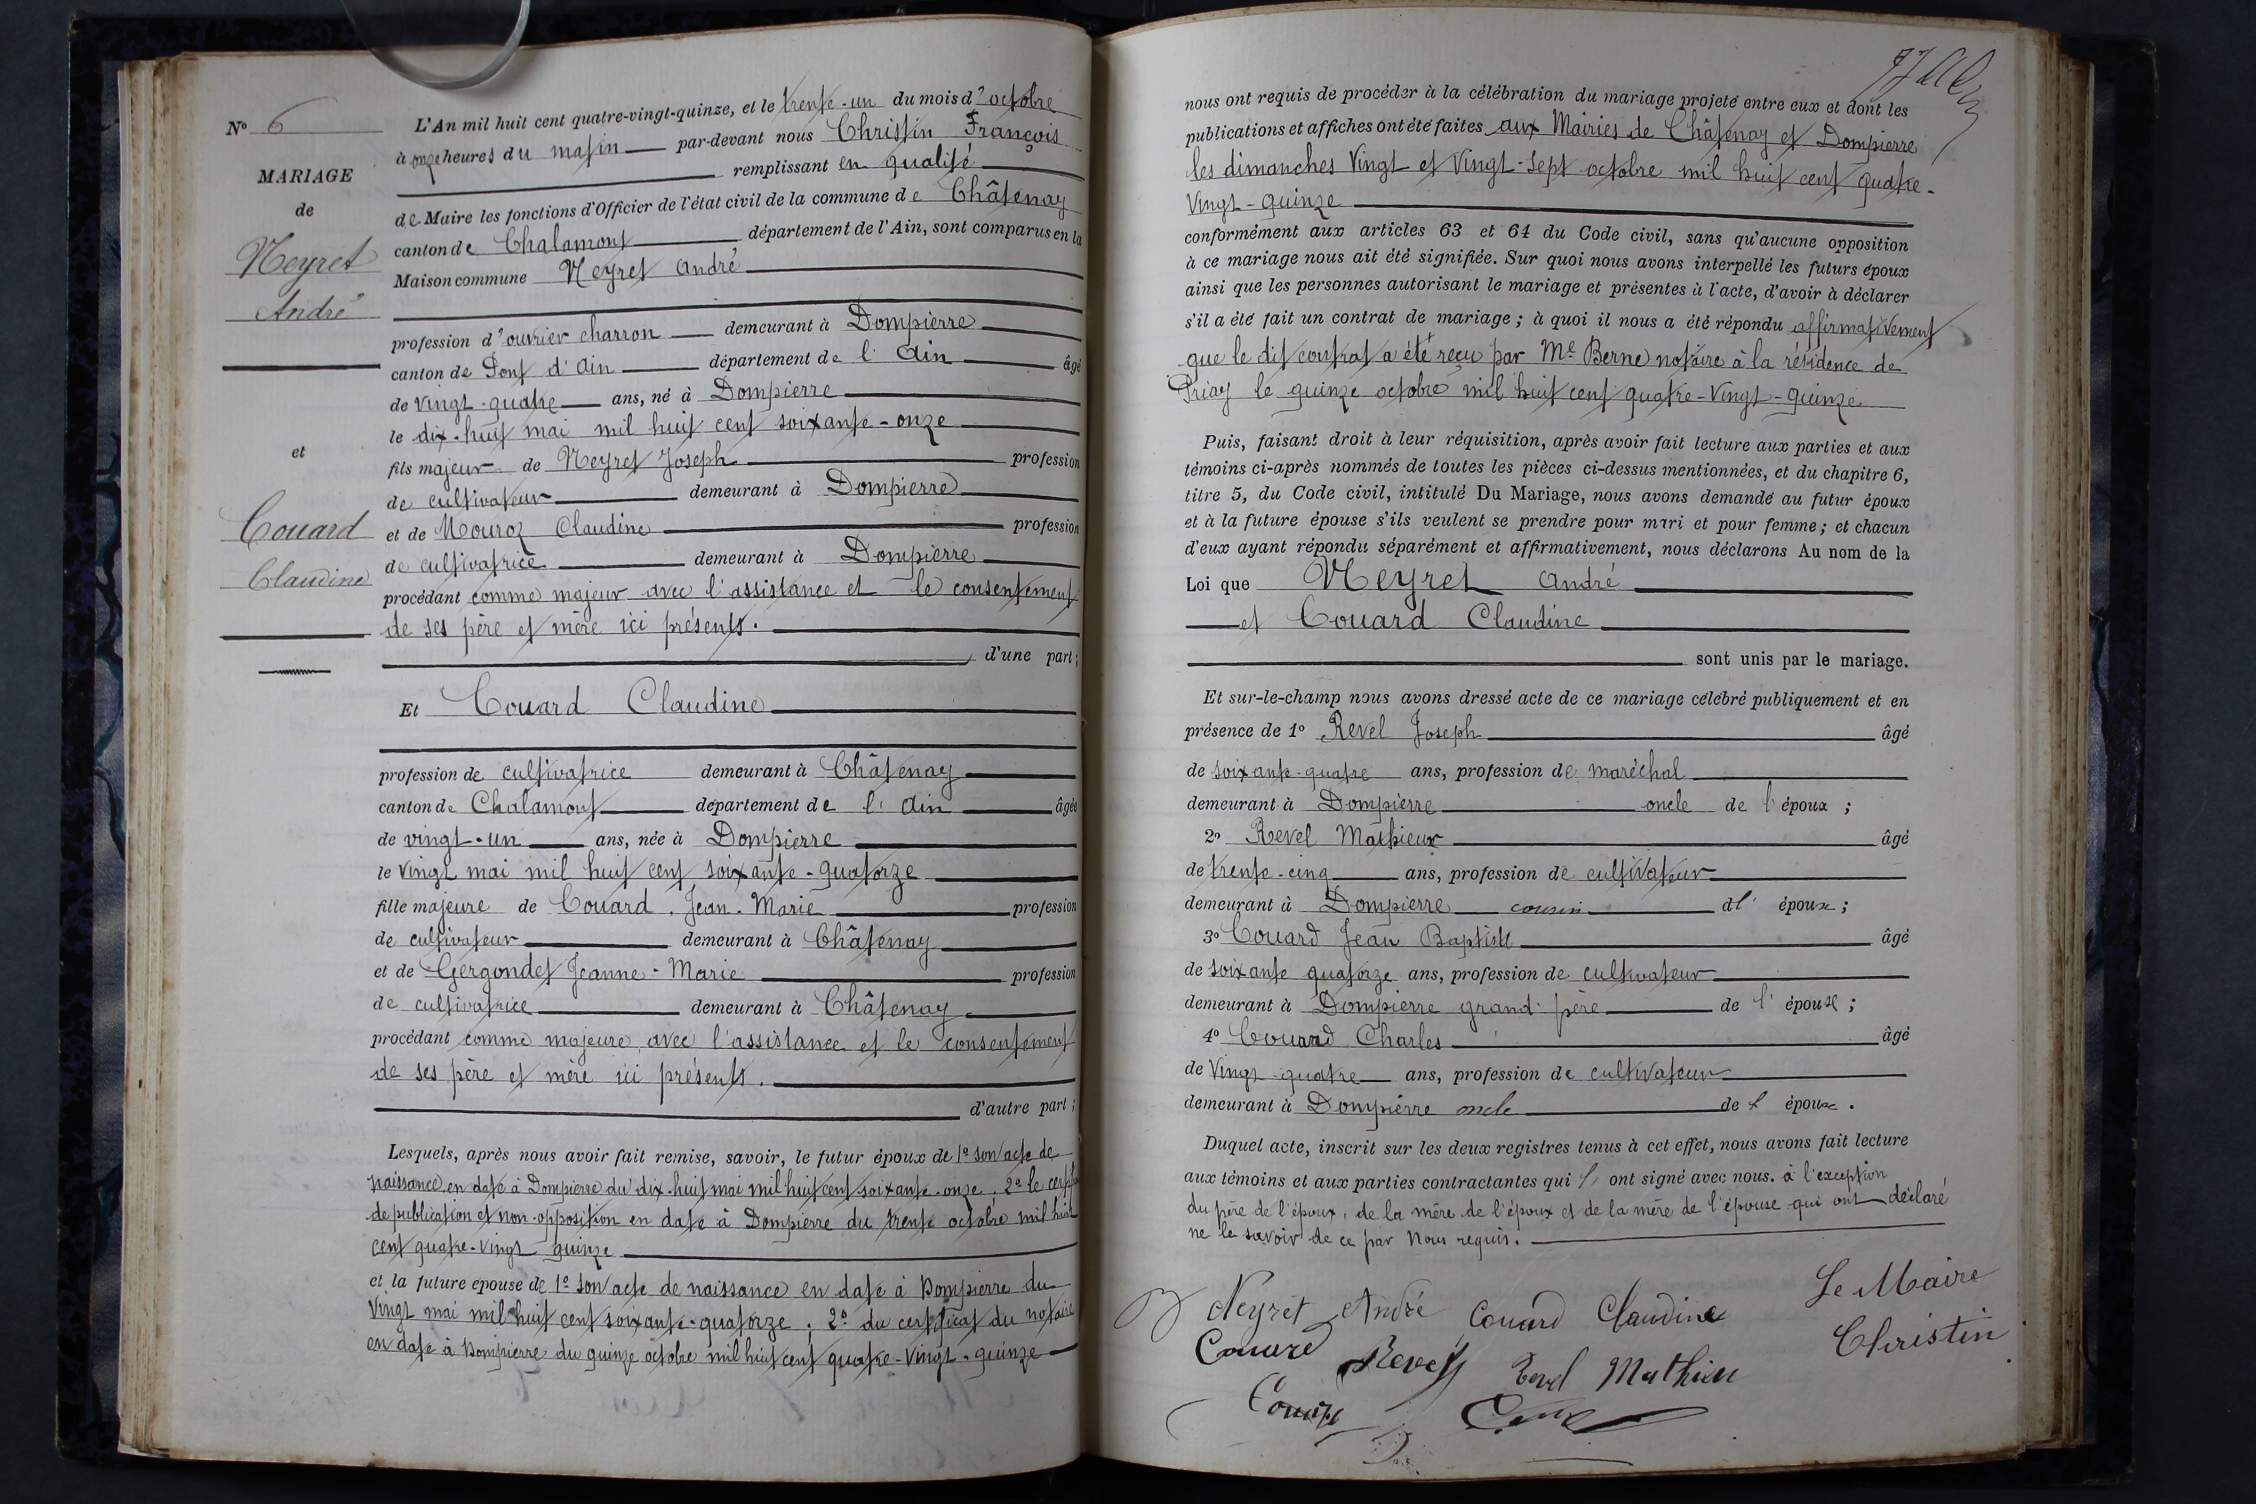 N° 6
MARIAGE
de
Neyret
André
et
Couard
Claudine
L'An mil huit cent quatre-vingt-quinze, et le trente-un du mois d'octobre
à onze heures du matin par-devant nous Christin François
remplissant en qualité
de Maire les fonctions d'Officier de l'état civil de la commune de Châtenay
canton de Chalamont département de l'Ain, sont comparus en la
Maison commune Neyret André
profession d'ouvrier charron demeurant à Dompierre
canton de Pont d'Ain département de l'Ain âgé
de vingt-quatre ans, né à Dompierre
le dix-huit mai mil huit cent soixante-onze
fils majeur de Neyret Joseph profession
de cultivateur demeurant à Dompierre
et de Mouroz Claudine profession
de cultivatrice demeurant à Dompierre
procédant comme majeur avec l'assistance et le consentement
de ses père et mère ici présents.
d'une part;
Et Couard Claudine
profession de cultivatrice demeurant à Châtenay
canton de Chalamont département de l'Ain âgée
de vingt-un ans, née à Dompierre
le vingt mai mil huit cent soixante-quatorze
fille majeure de Couard Jean-Marie profession
de cultivateur demeurant à Châtenay
et de Gergondet Jeanne-Marie profession
de cultivatrice demeurant à Châtenay
procédant comme majeure avec l'assistance et le consentement
de ses père et mère ici présents.
d'autre part;
Lesquels, après nous avoir fait remise, savoir, le futur époux de 1° son acte de
naissance en date à Dompierre du dix-huit mai mil huit cent soixante-onze. 2° le
de publication et non-opposition en date à Dompierre du trente octobre mil huit
cent quatre-vingt quinze
et la future epouse de 1° son acte de naissance en date à Dompierre du
vingt mai mil huit cent soixante-quatorze; 2° du certificat du notaire
en date à Dompierre du quinze octobre mil huit cent quatre-vingt-quinze
nous ont requis de procéder à la célébration du mariage projeté entre eux et dont les
publications et affiches ont été faites aux Mairies de Châtenay et Dompierre
les dimanches vingt et vingt-sept octobre mil huit cent quatre-
vingt-quinze
conformément aux articles 63 et 64 du Code civil, sans qu'aucune opposition
à ce mariage nous ait été signifiée. Sur quoi nous avons interpellé les futurs époux
ainsi que les personnes autorisant le mariage et présentes à l'acte, d'avoir à déclarer
s'il a été fait un contrat de mariage; à quoi il nous a été répondu affirmativement
que le dit contrat a été reçu par Me Berne notaire à la résidence de
Priay le quinze octobre mil huit cent quatre-vingt-quinze.
Puis, faisant droit à leur réquisition, après avoir fait lecture aux parties et aux
témoins ci-après nommés de toutes les pièces ci-dessus mentionnées, et du chapitre 6,
titre 5, du Code civil, intitulé Du Mariage, nous avons demandé au futur époux
et à la future épouse s'ils veulent se prendre pour mari et pour femme; et chacun
d'eux ayant répondu séparément et affirmativement, nous déclarons Au nom de la
Loi que Neyret André
et Couard Claudine
sont unis par le mariage.
Et sur-le-champ nous avons dressé acte de ce mariage célébré publiquement et en
présence de 1° Revel Joseph âgé
de soixante-quatre ans, profession de maréchal
demeurant à Dompierre oncle de l'époux;
2° Revel Mathieu âgé
de trente-cinq ans, profession de cultivateur
demeurant à Dompierre cousin d l' époux;
3° Couard Jean Baptiste âgé
de soixante quatorze ans, profession de cultivateur
demeurant à Dompierre grand-père de l'épouse;
4° Couard Charles âgé
de vingt-quatre ans, profession de cultivateur
demeurant à Dompierre oncle de l'épouse.
Duquel acte, inscrit sur les deux registres tenus à cet effet, nous avons fait lecture
aux témoins et aux parties contractantes qui l' ont signé avec nous. à l'exception
du père de l'époux, de la mère de l'époux et de la mère de l'épouse qui ont déclaré
ne le savoir de ce par Nous requis.
Neyret André Couard Claudine Le Maire
Couard Revel Revel Mathieu Christin